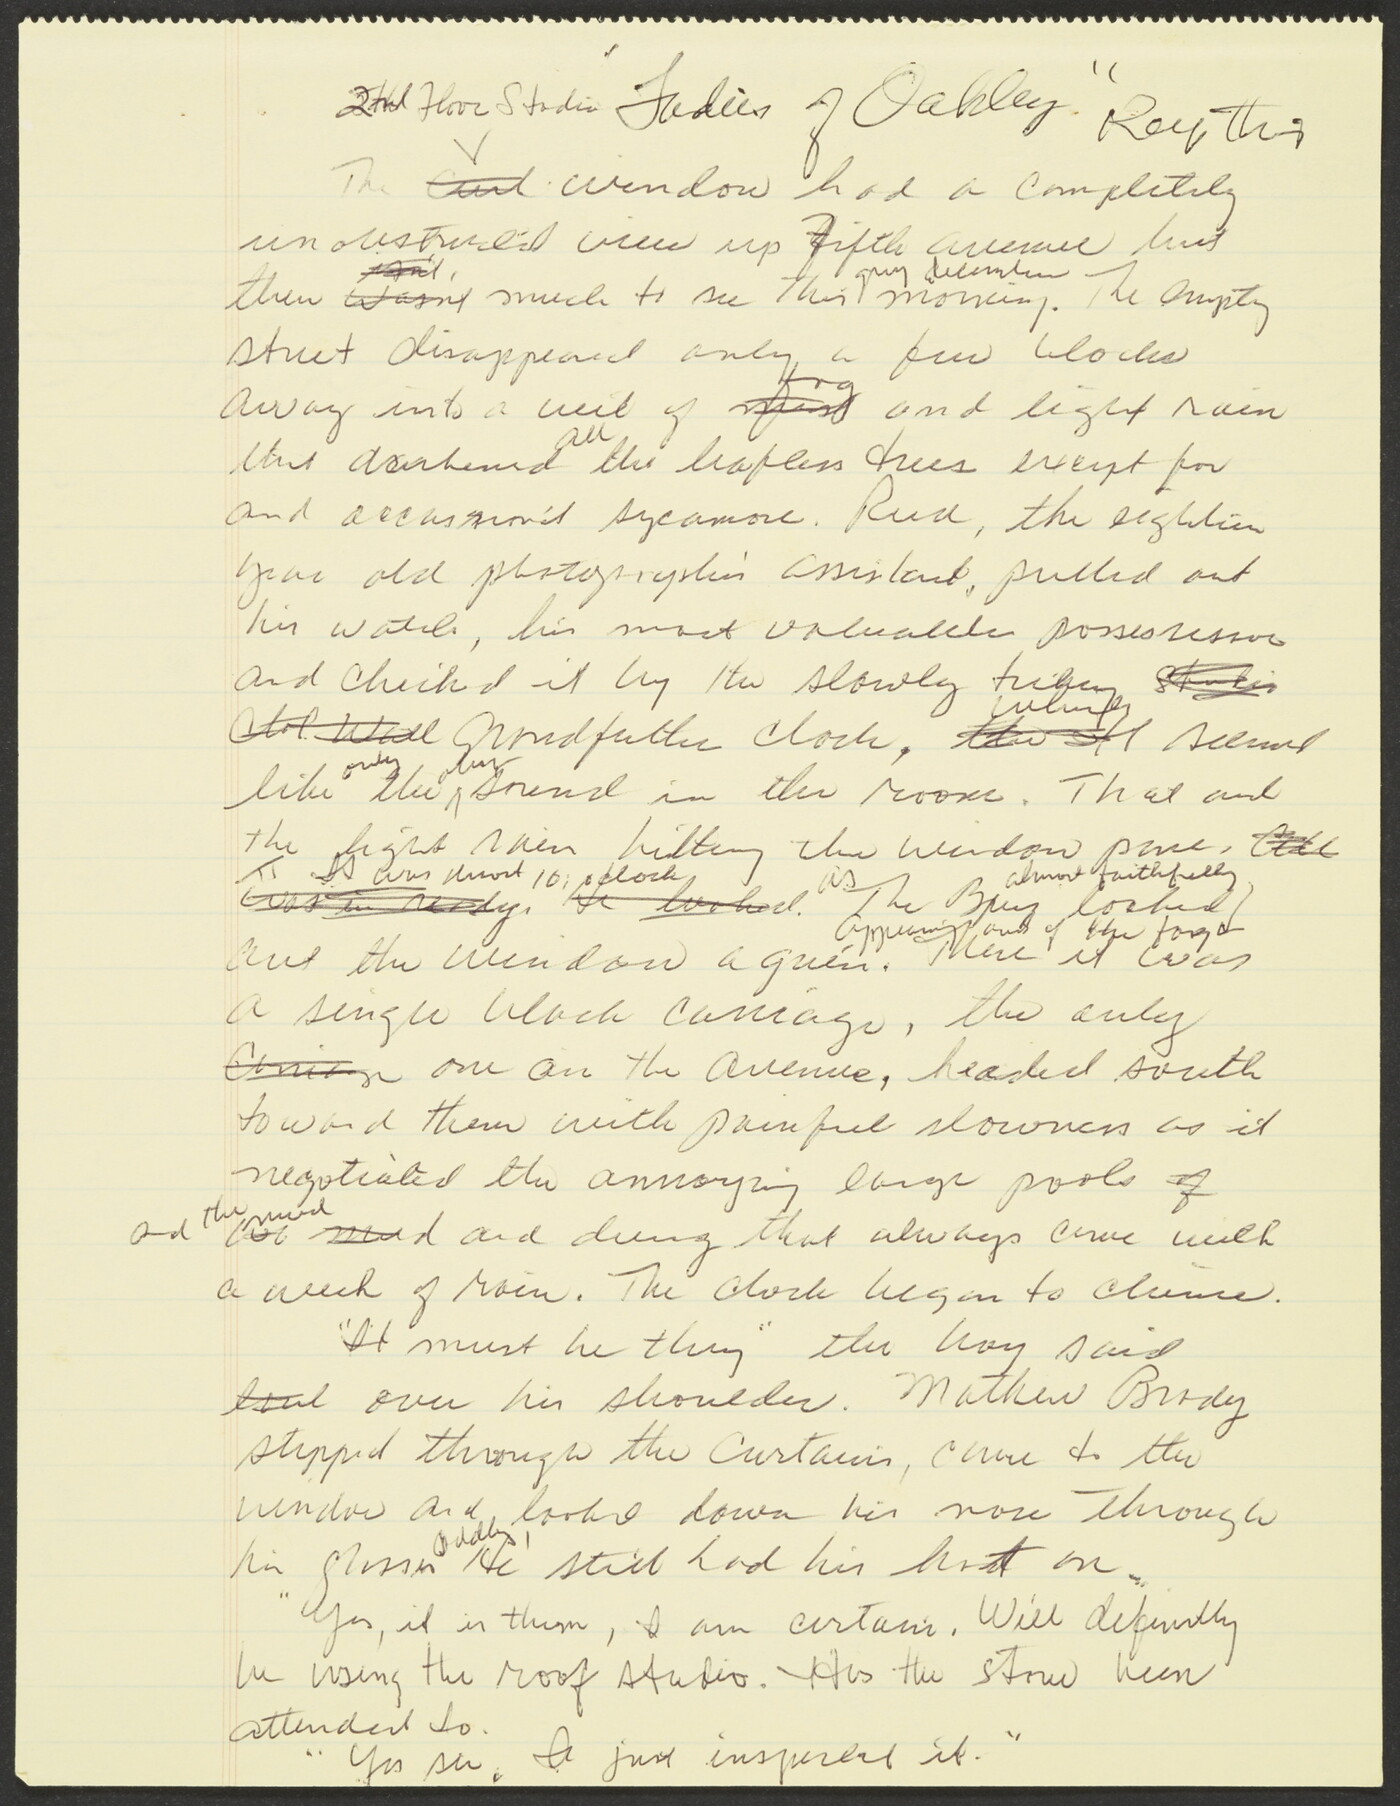 2nd Floor Studio "Ladies of Oakley"
The window had a completely
unobstructed view up Fifth avenue but
then wasn't much to see this grey december morning. The empty
street disappeared only a few blocks
away into a veil of fog and light rain
that darkened all the leafless trees except for
and occasional sycamore. the eighteen
year old photographer's assistant, pulled out
his watch, his most valuable possession
and checked it by the slowly ticking studio
Grandfather clock, It seemed
like only the other sound in the room. That and
the light rain hitting the window pane.
It was almost 10 o'clock as The Boy looked almost faithfully
out the window again. appearing out of the fog There it was
a single black carriage, the only
carriage one on the avenue, headed south
toward them with painful slowness as it
negotiated the annoying large pools of
and the mud and dung that always came with
a week of rain. The clock began to chime.
"It must be they" the boy said
over his shoulder. Mathew Brady
stepped through the curtains, came to the
window and looked down his nose through
his glasses Oddly, He still had his hat on.
"Yes, it is them, I am certain. Will definitly
be using the roof studio. Has the stove been
attended to.
"Yes sir. I just inspected it."